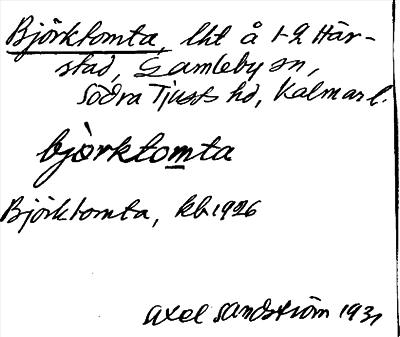 Björktomta, lht å 1-2 Här-
stad, Gamleby sn,
Södra Tjusts hd, Kalmar l.
björktomta
Björktomta, kb 1926
Axel Sandström 1931